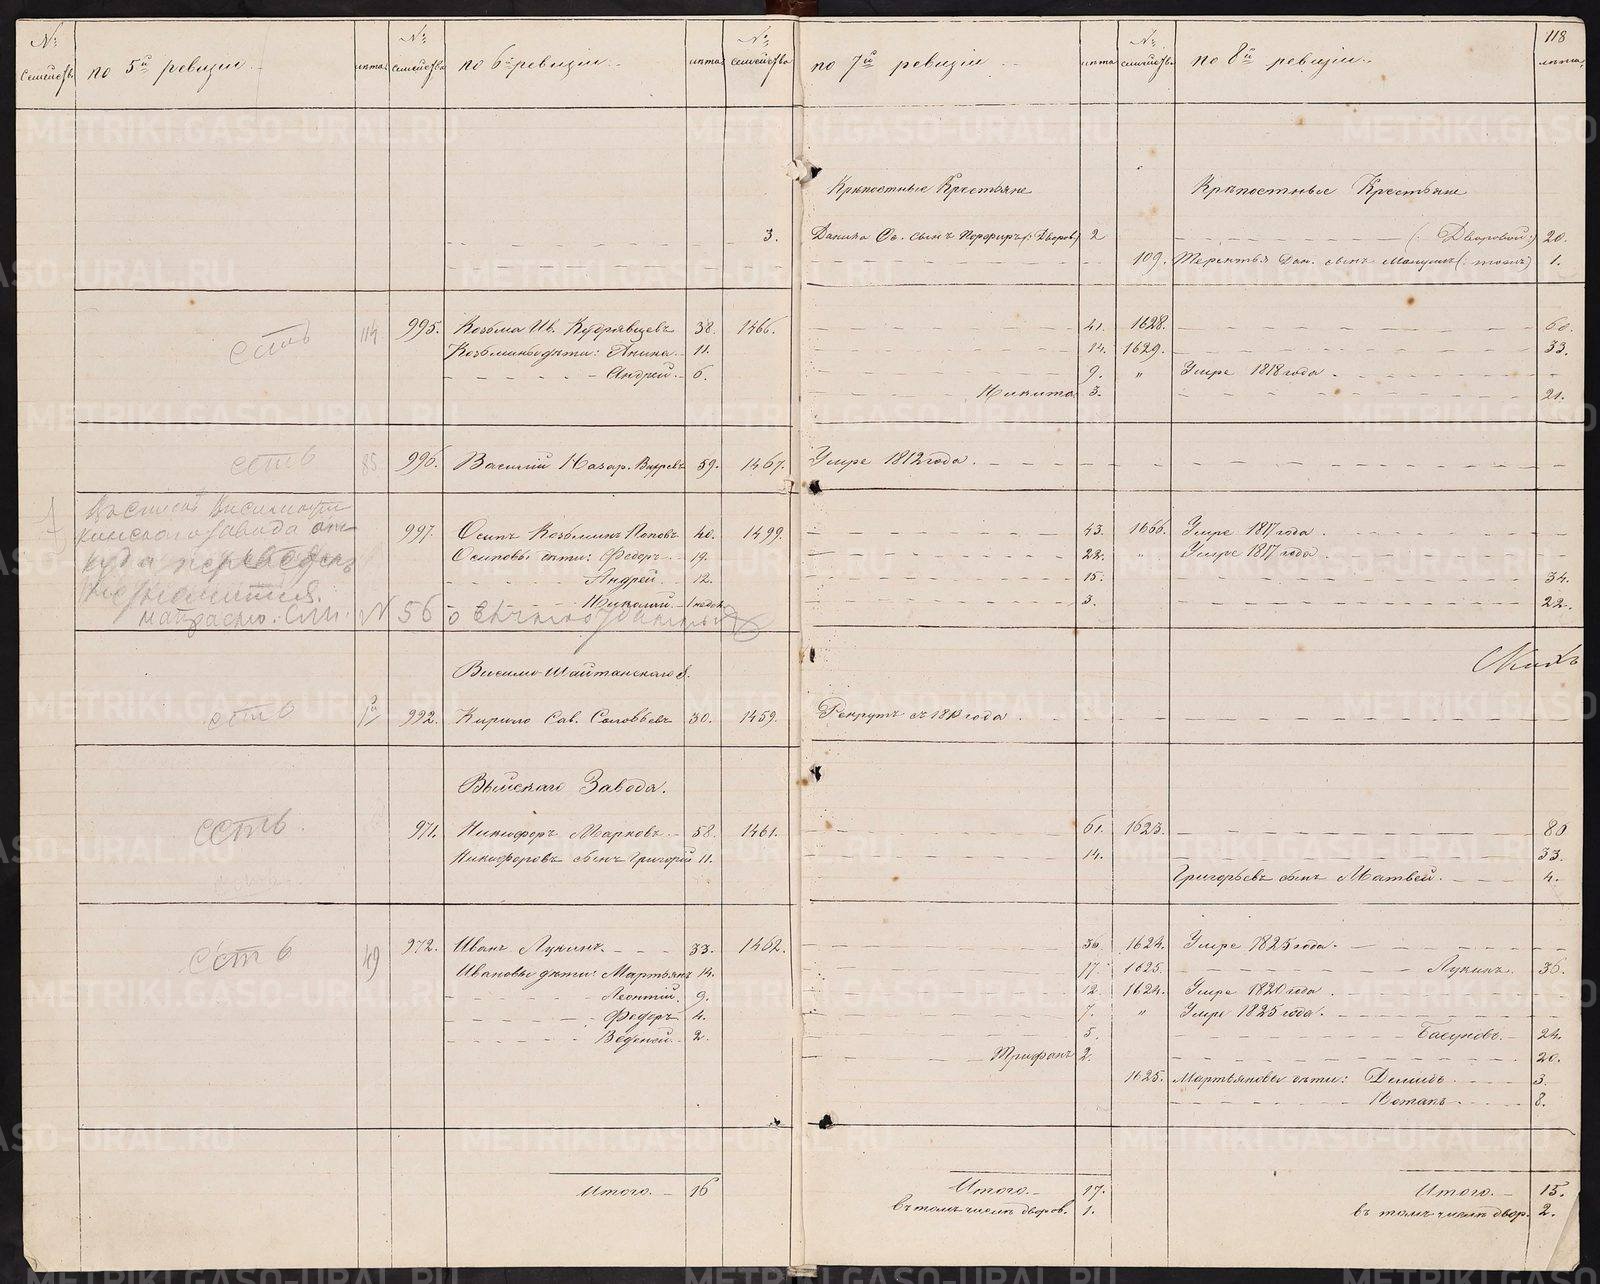 118
№ семейства по 5й ревизии лѣта № семейства по 6й ревизии лѣта № семейства по 7й ревизіи лѣта № семейства по 8й ревизіи лѣта
Крѣпостные Крестьяне Крѣпостные Крестьяне
3. Данила Ос. сынъ Порфиръ (: Дворов:) 2 (: Дворовой:) 20.
109. Терентья Дан. сынъ (: тоже:) 1.
есть 114 995. Козьма Ив. Кудрявцевъ 38. 1466. 41. 1628. 60.
Козьмины дѣти: Аника 11. 14. 1629. 33.
Андрей 6. 9. " Умре 1818 года.
Никита 3. 21.
есть 85 996. Василий Назар. 59. 1467. Умре 1812 года.
Въ списк Висимошайтанскаго завода от
куда переведенъ
997. Осипъ Козьминъ Поповъ 40. 1499. 43. 1666. Умре 1817 года.
Осиповы дѣти: Федоръ 19. 22. " Умре 1817 года.
Андрей 12. 15. 34.
Николай 1 недѣл. 3. 22.
напрасно. См. № 56 о
Висимо-Шайтанскаго з.
есть 992. Кирило Сав. Соловьевъ 30. 1459. Рекрутъ съ 1813 года.
Выйскаго Завода.
есть 971. Никифоръ Марковъ 58. 1461. 61. 1623. 80
Никифоровъ сынъ Григорій 11. 14. 33.
Григорьевъ сынъ Матвей. 4.
есть 49 972. Иванъ Лукинъ. 33. 1462. 36. 1624. Умре 1825 года.
Ивановы дѣти: Мартьянъ 14. 17. 1625. Лукинъ. 36.
Леонтій. 9. 12. 1624. Умре 1820 года.
Федоръ 4. 7. " Умре 1825 года.
Веденей 2. 5. 24.
Трифонъ 2. 20.
1625. Мартьяновы дѣти: Демидъ 3.
Потапъ 8.
Итого. 16 Итого. 17. Итого. 15.
въ томъ числѣ дворов. 1. въ томъ числѣ двор. 2.
METRIKI.GASO-URAL.RU